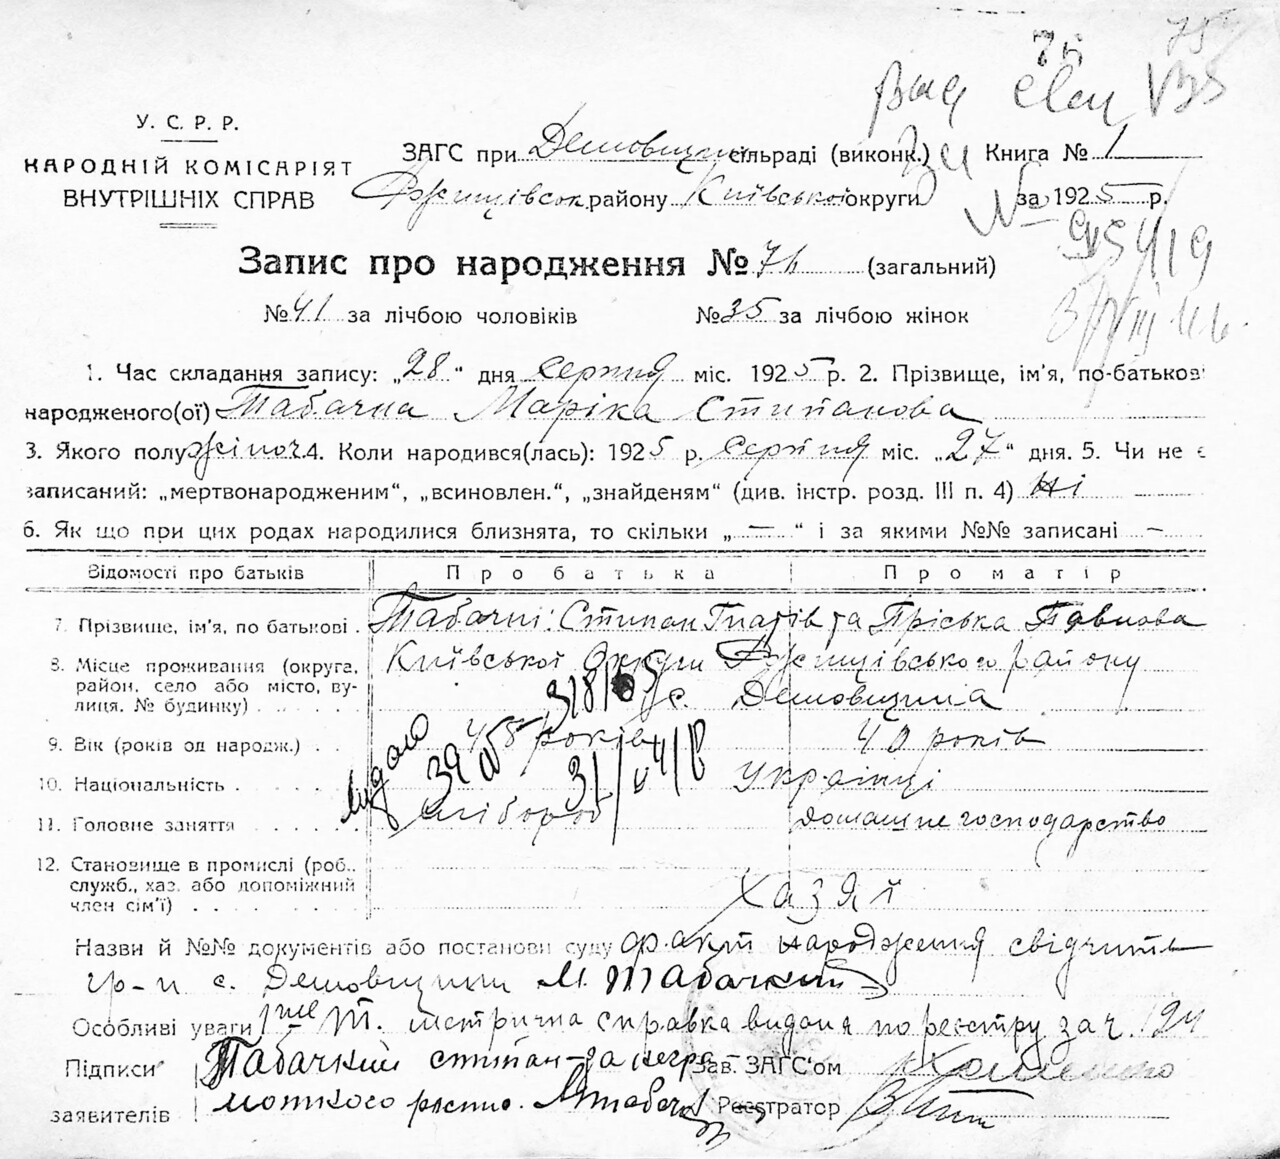 75
76
Вид свід
У. С. Р. Р.
НАРОДНІЙ КОМІСАРІЯТ
ВНУТРІШНІХ СПРАВ
ЗАГС при Демовщин. сільраді (виконк.) Книга № 1
Ржищівськ. району Київської округи за 1925 р.
№ 95419
Запис про народження № 76 (загальний)
№ 41 за лічбою чоловіків № 35 за лічбою жінок
1. Час складання запису: „28“ дня серпня міс. 1925 р. 2. Прізвище, ім'я, по-батькові
народженого(ої) Табачна Маріка Стипанова
3. Якого полу жіноч. 4. Коли народився(лась): 1925 р. серпня міс. „27“ дня. 5. Чи не є
записаний: „мертвонародженим“, „всиновлен.“, „знайденям“ (див. інстр. розд. III п. 4) Ні
6. Як що при цих родах народилися близнята, то скільки „—“ і за якими №№ записані —
Відомості про батьків Про батька Про матір
7. Прізвище, ім'я, по батькові . Табачні: Стипан Гнатів та Пріська Павлова
8. Місце проживання (округа, район, село або місто, вулиця, № будинку) . . . . . Київської Округи Ржищівського району
с. Демовщина
9. Вік (років од народж.) . . 48 років 40 років
10. Національність . . . . . Українці
видано
11. Головне заняття . . . . . хлібороб домашнє господарство
12. Становище в промислі (роб., служб., хаз. або допоміжний член сім'ї) . . . . . Хазяй
Назви й №№ документів або постанови суду факт народження свідчить
гр-н с. Демовщини М. Табачкий
Особливі уваги метрична справка видана по реєстру за ч. 124
Підписи Табачкий стипан Зав. ЗАГС'ом
заявителів Реєстратор